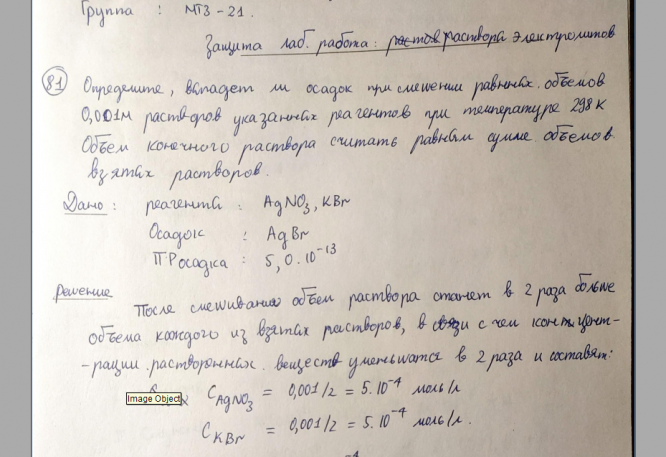 Группа : МТЗ-21.
Защита лаб. работа: растворы электролитов
81 Определите, выпадет ли осадок при смешении равных объемов
0,001М растворов указанных реагентов при температуре 298 К
Объем конечного раствора считать равным сумме объемов
взятых растворов.
Дано: реагенты : AgNO3, KBr
Осадок : AgBr
ПР осадка : 5,0·10⁻¹³
Решение После смешивания объем раствора станет в 2 раза больше
объема каждого из взятых растворов, в связи с чем концент-
-рации растворенных веществ уменьшатся в 2 раза и составят:
Image Object C AgNO3 = 0,001/2 = 5·10⁻⁴ моль/л
C KBr = 0,001/2 = 5·10⁻⁴ моль/л.